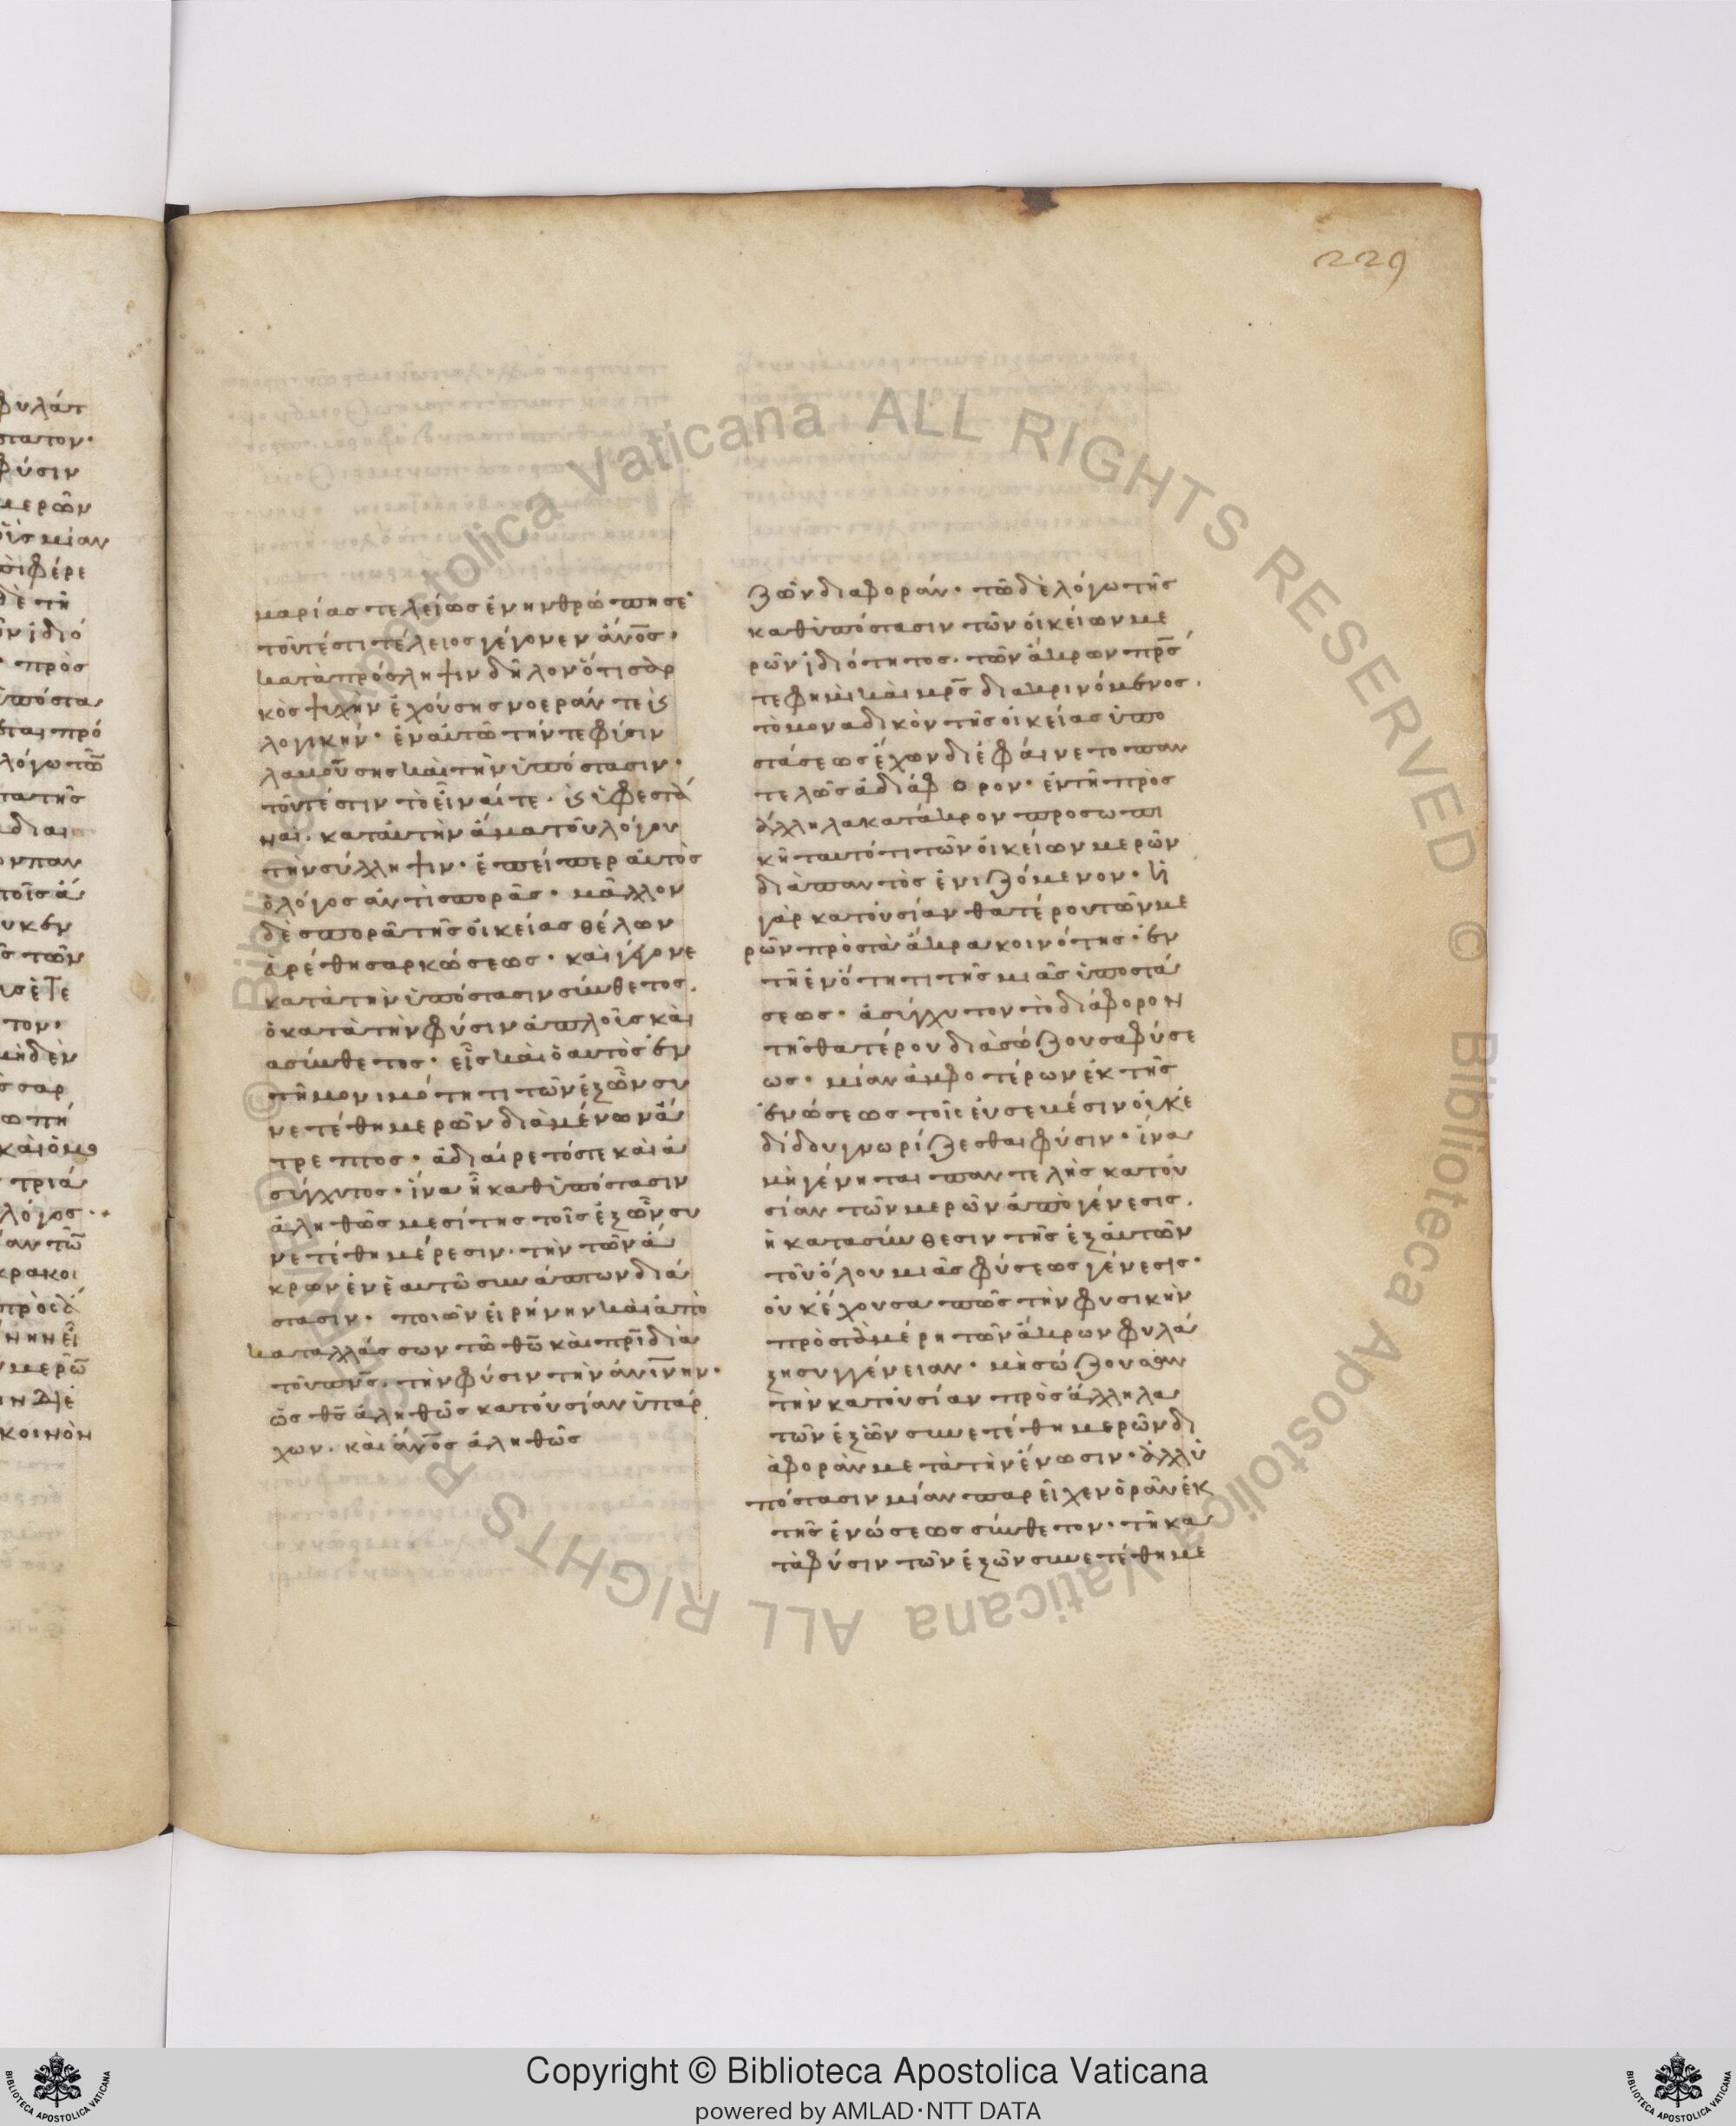 229
μαρίας τελείως ἐνηνθρώπησε·
τουτέστι τέλειος γέγονεν ἄνος·
κατὰ πρόσληψιν δηλονότι σαρ
κὸς ψυχὴν ἐχούσης νοεράν τε κ
λογικήν· ἐν αὐτῶ τήν τε φύσιν
λαχούσης καὶ τὴν ὑπόστασιν·
τουτέστιν τὸ εἶναί τε· κ ὑφεστά
ναι· κατ αὐτὴν ἅμα τοῦ λόγου
τὴν σύλληψιν· ἐπείπερ αὐτὸς
ὁ λόγος ἀντὶ σπορᾶς· μᾶλλον
δὲ σπορὰ τῆς οἰκείας θέλων
εὑρέθη σαρκώσεως· καὶ γέγονε
κατὰ τὴν ὑπόστασιν σύνθετος·
ὁ κατὰ τὴν φύσιν ἁπλοῦς καὶ
ασύνθετος· εἷς καὶ ὁ αυτὸς ἐν
τῆ μονιμότητι τῶν ἐξ ὧν συ
νετέθη μερῶν διαμένων ἄ
τρεπτος· ἀδιαίρετός τε καὶ ἀ
σύγχυτος· ἵνα ἦ καθ ὑπόστασιν
ἀληθῶς μεσίτης τοῖς ἐξ ὧν συ
νετέθη μέρεσιν· τὴν τῶν ἄ
κρων ἐν ἑαυτῶ συνάπτων διά
στασιν· ποιῶν εἰρήνην καὶ ἀπο
καταλλάσσων τῶ θῶ καὶ πρὶ διὰ
τοῦ πνς· τὴν φύσιν τὴν ἀνίνην·
ὡς θς ἀληθῶς κατ οὐσίαν ὑπάρ
χων· καὶ ἄνος ἀληθῶς
ζῶν διαφοράν· τῶ δὲ λόγω τῆς
καθ ὑπόστασιν τῶν οἰκείων με
ρῶν ἰδιότητος· τῶν ἄκρων πρς
τε φημὶ καὶ μρς διακρινόμενος·
τὸ μοναδικὸν τῆς οἰκείας ὑπο
στάσεως ἔχων διεφαίνετο παν
τελῶς ἀδιάφορον· ἐν τῆ πρὸς
ἄλληλα κατάκρον προσωπι
κῆ ταυτότητι τῶν οἰκείων μερῶν
διὰ παντὸς ἑνιζόμενον· ἡ
γὰρ κατ οὐσίαν θατέρου τῶν με
ρῶν πρὸς τὰ ἄκρα κοινότης· ἐν
τῆ ἑνότητι τῆς μιᾶς ὑποστά
σεως· ἀσύγχυτον τὸ διάφορον
τῆς θατέρου διασώζουσα φύσε
ως· μίαν ἀμφοτέρων ἐκ τῆς
ἑνώσεως τοῖς εὐσεβέσιν οὐκ ἐ
δίδου γνωρίζεσθαι φύσιν· ἵνα
μὴ γένηται παντελὴς κατ οὐ
σίαν τῶν μερῶν ἀπογένεσις·
ἡ κατα σύνθεσιν τῆς ἐξ αὐτῶν
τοῦ ὅλου μιᾶς φύσεως γένεσις·
οὐκ ἔχουσα πῶς τὴν φυσικὴν
πρὸς τὰ μέρη τῶν ἄκρων φυλά
ξη συγγένειαν· μὴ σώζουσαν
τὴν κατ οὐσίαν πρὸς ἄλληλα
τῶν ἐξ ὧν συνετέθη μερῶν δι
αφορὰν μετὰ τὴν ἕνωσιν· ἀλλ ὑ
πόστασιν μίαν παρεῖχεν ὁρᾶν ἐκ
τῆς ἑνώσεως σύνθετον· τῆ κα
τὰ φύσιν τῶν ἐξ ὧν συνετέθη με
Copyright © Biblioteca Apostolica Vaticana
powered by AMLAD·NTT DATA